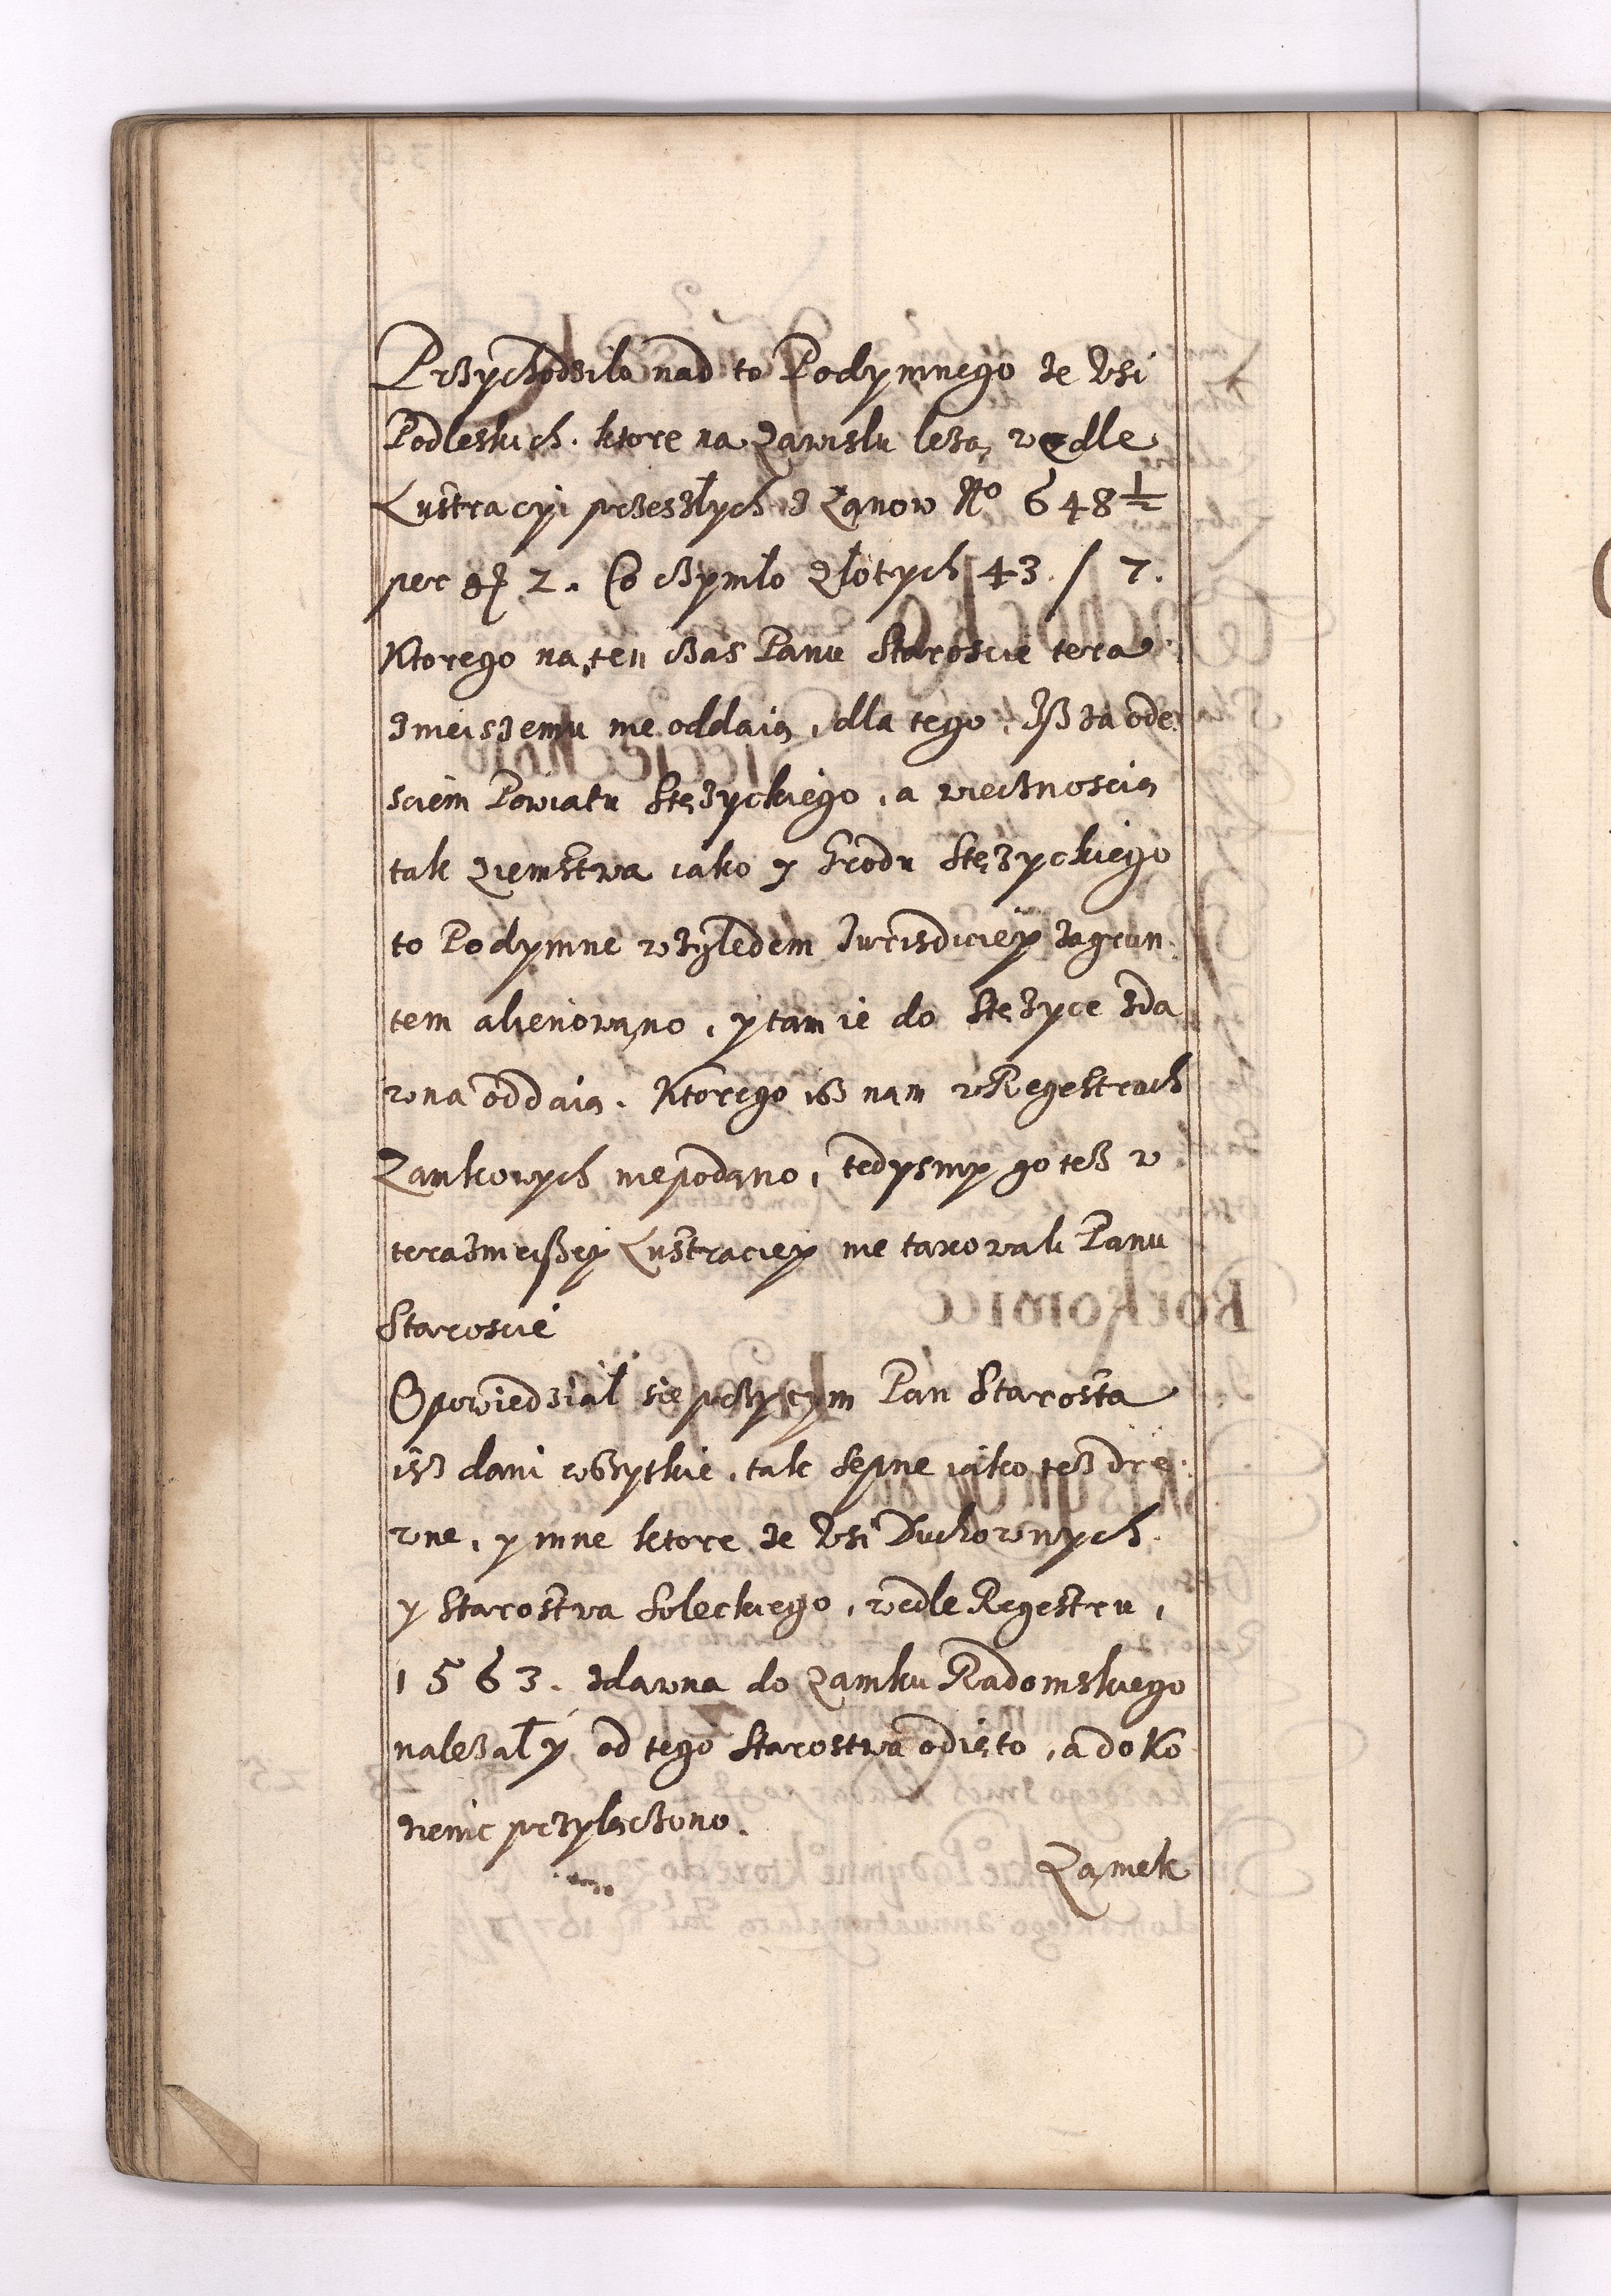 Przychodziło nad to Podymnego ze Wsi
Podleskich. ktore na Zawislu leżą, wedle
Lustracyi przeszłych z Łanow No 648 1/2
per g 2. Co czyniło Złotych 43 / 7.
Ktorego na ten czas Panu Staroscie tera
znieiszemu nie oddaią, dla tego, Iż za ode
sciem Powiatu Stężyckiego, a wiecznoscią
tak Ziemstwa iako y Grodu Stężyckiego
to Podymne względem Iurisdiciey zagrun
tem alienowano, y tam ie do Stężyce zda
wna oddaią. Ktorego iż nam w Regestrach
Zamkowych niepodano, tedysmy go też w
teraznieiszey Lustraciey nie taxowali Panu
Staroscie
Opowiedział się przytym Pan Starosta
isz dani wszytkie, tak sepne iako też dre
wne, y inne ktore ze Wsi Duchownych
y Starostwa Soleckiego, wedle Regestru,
1563. zdawna do Zamku Radomskiego
należały od tego Starostwa odięto, a do Ko
zienic przyłączono.
Zamek